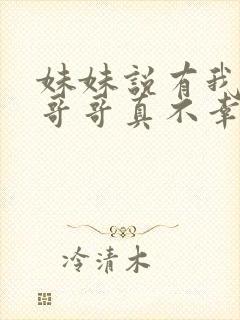 妹妹说有我
哥哥真不幸
冷清木